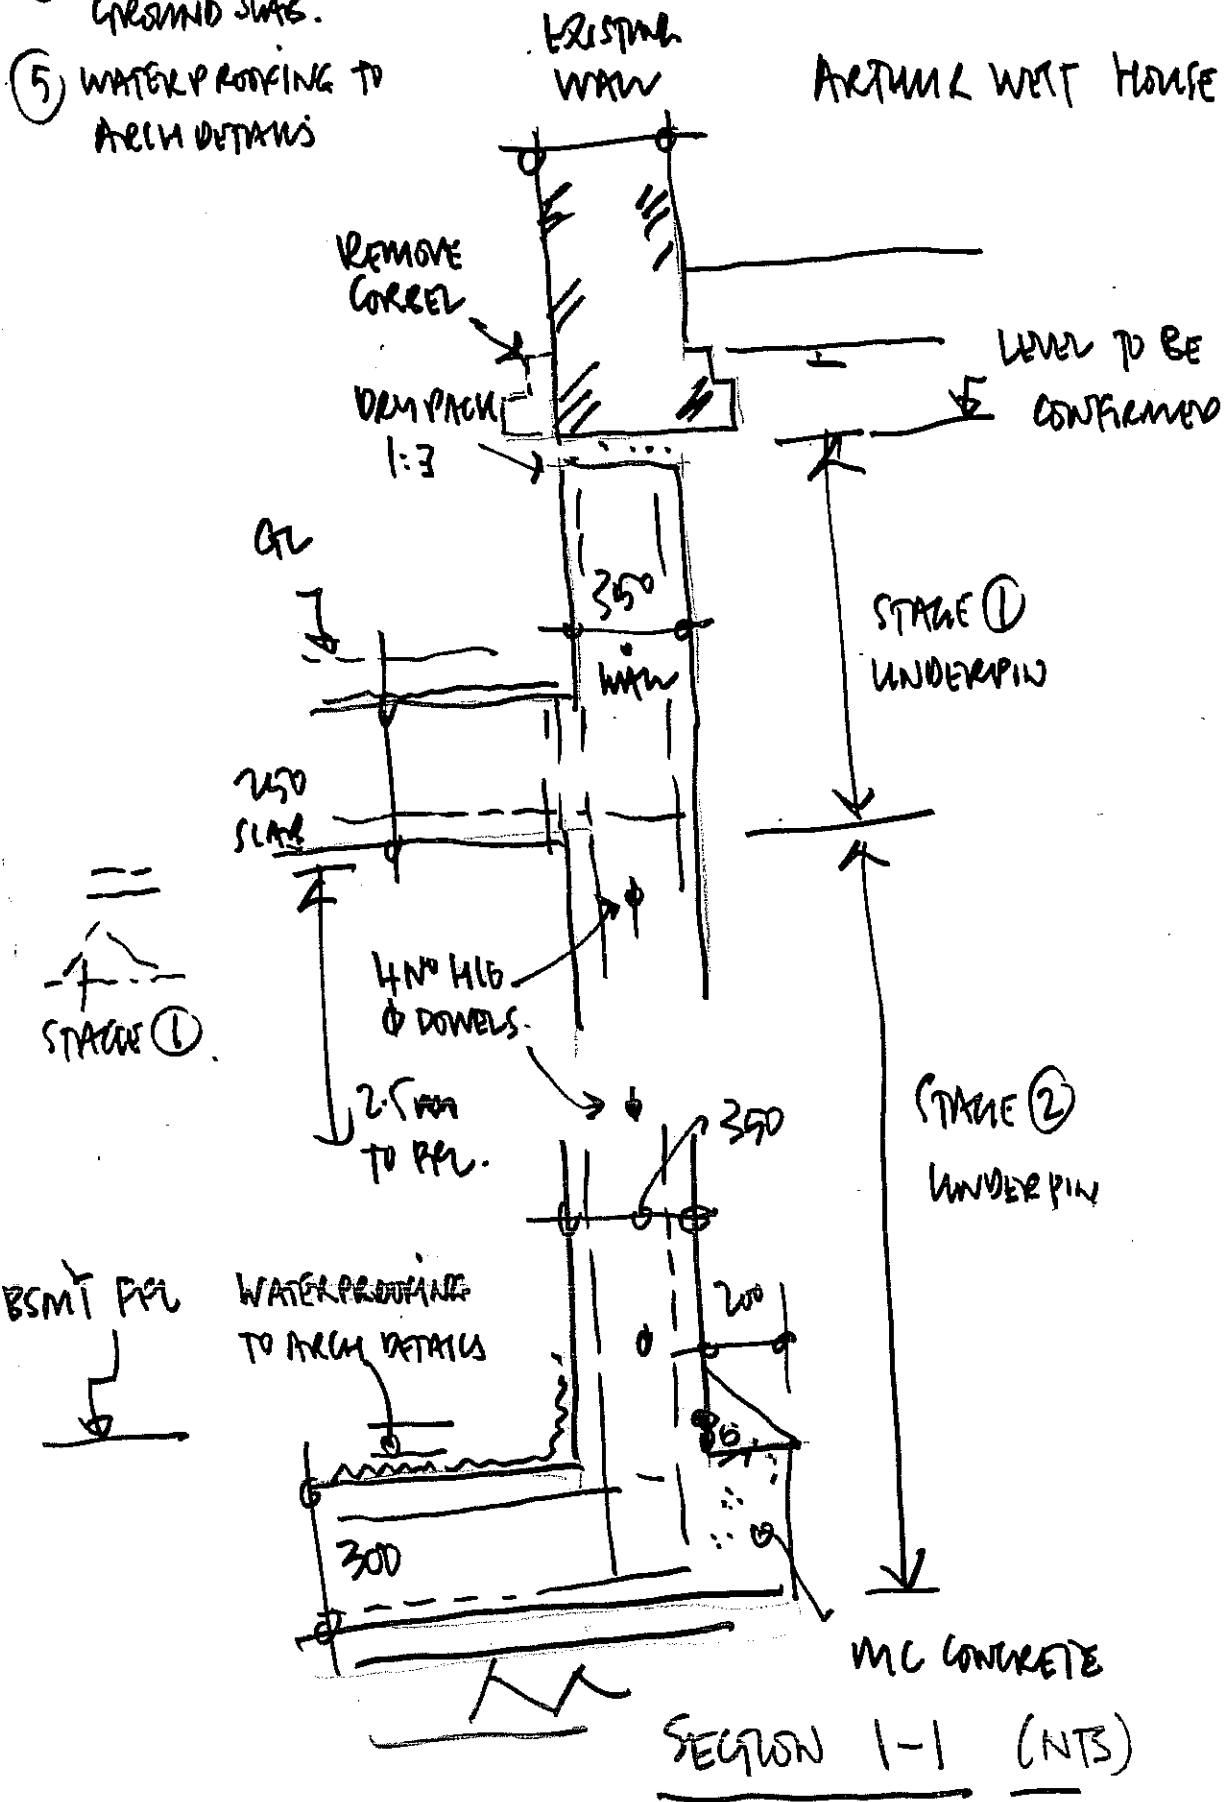 GROUND SLAB.
⑤ WATERPROOFING TO
ARCH DETAILS
EXISTING
WALL
ARTHUR WEST HOUSE
REMOVE
CORBEL
DRY PACK
1:3
LEVEL TO BE
CONFIRMED
GL
350
WALL
STAGE ①
UNDERPIN
250
SLAB
4 NO H16
ϕ DOWELS.
STAGE ①.
2.5
TO FFL.
350
STAGE ②
UNDERPIN
BSMT FFL
WATERPROOFING
TO ARCH DETAILS
200
300
MC CONCRETE
SECTION 1-1 (NTS)